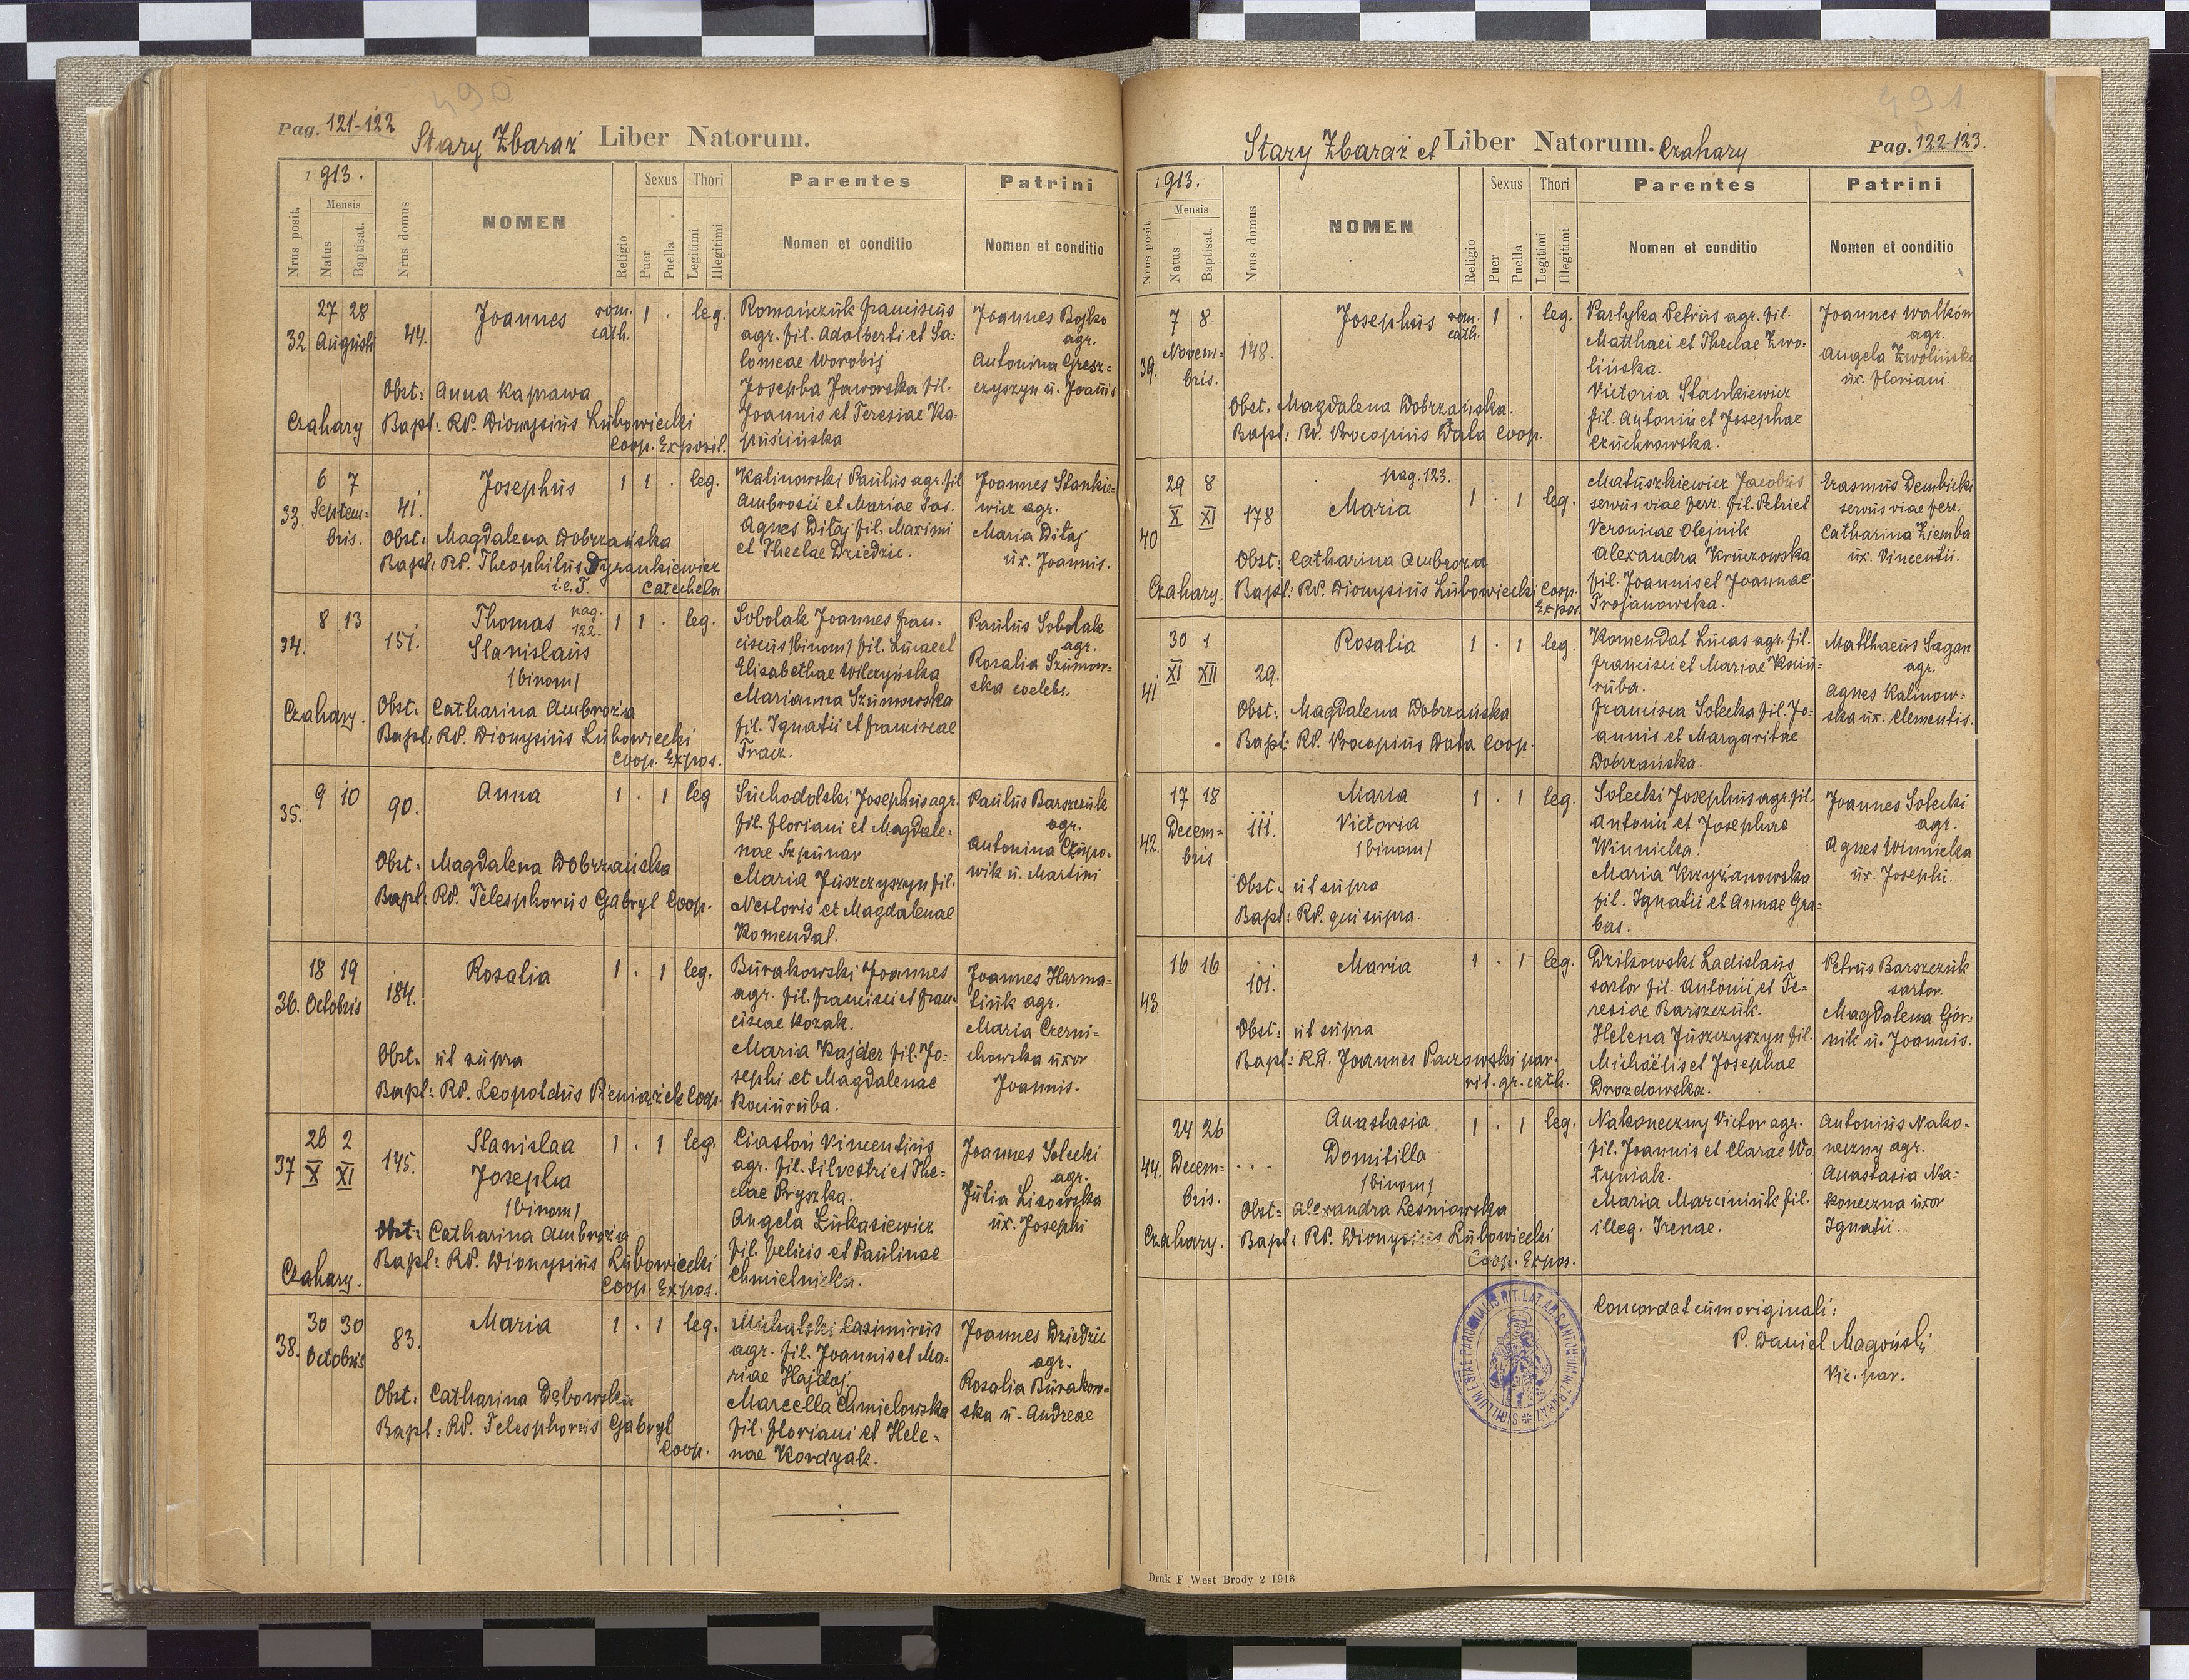 490
Pag. 121-122
Stary Zbaraż Liber Natorum.
1913.
Nrus posit.
Mensis
Natus
Baptisat.
Nrus domus
NOMEN
Religio
Sexus
Puer
Puella
Thori
Legitimi
Illegitimi
Parentes
Nomen et conditio
Patrini
Nomen et conditio
32 27 28 Augusti 44. Joannes rom. cath. 1 . leg.
Romańczuk Franciscus
agr. fil. Adalberti et Sa-
lomeae Worobij
Josepha Jaworska fil.
Joannis et Teresiae Ka-
puścińska
Joannes Bojko
agr.
Antonina Gresz-
czyszyn u. Joanis
Obst: Anna Kaprawa
Czahary Bapt: RP. Dionysius Lubowiecki
Coop. Exposit.
33. 6 7 Septem-
bris. 41. Josephus 1 1 . leg.
Kalinowski Paulus agr. fil
Ambrosii et Mariae Sas.
Agnes Ditaj fil. Maximi
et Theclae Dziedzic.
Joannes Stankie-
wicz agr.
Maria Ditaj
ux. Joannis.
Obst: Magdalena Dobrzańska
Bapt: RP. Theophilus Dyrankiewicz
i.e. T. Catecheta.
34. 8 13 151. Thomas pag. 122. 1 1 . leg.
Stanislaus
/binom/
Sobolak Joannes Fran-
ciscus /binom/ fil. Lucae et
Elisabethae Wilczyńska
Marianna Szumowska
fil. Ignatii et Franciscae
Tracz.
Paulus Sobolak
agr.
Rosalia Szumow-
ska coelebs.
Czahary. Obst: Catharina Ambrozia
Bapt: RP. Dionysius Lubowiecki
Coop. Expos.
35. 9 10 90. Anna 1 . 1 leg
Suchodolski Josephus agr.
fil. Floriani et Magdale-
nae Szpunar
Maria Juszczyszyn fil.
Nestoris et Magdalenae
Komendat.
Paulus Barszczuk
agr.
Antonina Czupo-
wik u. Martini
Obst: Magdalena Dobrzańska
Bapt: RP. Telesphorus Gabryl Coop.
36. 18 19 Octobris 184. Rosalia 1 . 1 leg.
Burakowski Joannes
agr. fil. Francisci et Fran-
ciscae Kozak.
Maria Kajder fil. Jo-
sephi et Magdalenae
Kociuruba.
Joannes Harma-
tiuk agr.
Maria Czerni-
chowska uxor
Joannis.
Obst. ut supra
Bapt: RP. Leopoldus Pieniążek Coop.
37 26 2
X XI 145. Stanislaa 1 . 1 leg.
Josepha
/binom/
Ciastoń Vincentius
agr. fil. Silvestri et The-
clae Pryszka.
Angela Łukasiewicz
fil. Felicis et Paulinae
Chmielnicka.
Joannes Solecki
agr.
Julia Lisowska
ux. Josephi
Obst: Catharina Ambrozia
Bapt: RP. Dionysius Lubowiecki
Czahary. Coop. Expos.
38. 30 30 Octobris 83. Maria 1 . 1 leg.
Michalski Casimirus
agr. fil. Joannis et Ma-
riae Hajdoj.
Marcella Chmielowska
fil. Floriani et Hele-
nae Kordyak.
Joannes Dziedzic
agr.
Rosalia Burakow-
ska u. Andreae
Obst. Catharina Dębowska
Bapt: RP. Telesphorus Gabryl
Coop.
491
Stary Zbaraż et Liber Natorum. Czahary
Pag. 122-123.
1913.
Nrus posit.
Mensis
Natus
Baptisat.
Nrus domus
NOMEN
Religio
Sexus
Puer
Puella
Thori
Legitimi
Illegitimi
Parentes
Nomen et conditio
Patrini
Nomen et conditio
39. 7 8 Novem-
bris. 148. Josephus rom. cath. 1 . leg.
Partyka Petrus agr. fil.
Matthaei et Theclae Zwo-
lińska.
Victoria Stankiewicz
fil. Antonii et Josephae
Czuchrowska.
Joannes Walków
agr.
Angela Zwolińska
ux. Floriani.
Obst. Magdalena Dobrzańska.
Bapt: RP. Procopius Data Coop.
pag. 123.
40 29 8
X XI 178 Maria 1 . 1 leg.
Matuszkiewicz Jacobus
servus viae ferr. fil. Petri et
Veronicae Olejnik
Alexandra Kruczowska
fil. Joannis et Joannae
Trojanowska.
Erasmus Dembicki
servus viae ferr.
Catharina Ziemba
ux. Vincentii.
Obst: Catharina Ambrozia
Czahary. Bapt: RP. Dionysius Lubowiecki Coop.
Expos.
41 30 1
XI XII 29. Rosalia 1 . 1 leg.
Komendat Lucas agr. fil.
Francisci et Mariae Kociu-
ruba.
Francisca Solecka fil. Jo-
annis et Margaritae
Dobrzańska.
Matthaeus Sagan
agr.
Agnes Kalinow-
ska ux. Clementis.
Obst: Magdalena Dobrzańska
Bapt: RP. Procopius Data Coop.
42. 17 18 Decem-
bris 111. Maria 1 . 1 leg.
Victoria
/binom/
Solecki Josephus agr. fil.
Antonii et Josephae
Winnicka.
Maria Krzyżanowska
fil. Ignatii et Annae Gra-
bas.
Joannes Solecki
agr.
Agnes Winnicka
ux. Josephi
Obst: ut supra
Bapt: RP. qui supra.
43. 16 16 101. Maria 1 . 1 leg.
Dzikowski Ladislaus
sartor fil. Antonii et Te-
resiae Barszczuk.
Helena Juszczyszyn fil.
Michaëlis et Josephae
Drozdowska.
Petrus Barszczuk
sartor.
Magdalena Gór-
nik u. Joannis.
Obst: ut supra
Bapt: RD. Joannes Paczowski par.
rit. gr. cath.
44. 24 26 Decem-
bris. ... Anastasia. 1 . 1 leg.
Domitilla
/binom/
Nakoneczny Victor agr.
fil. Joannis et Clarae Wo
tyniak.
Maria Marciniuk fil.
illeg. Irenae.
Antonius Nako-
neczny agr.
Anastasia Na-
koneczna uxor
Ignatii
Obst: Alexandra Lesniowska
Czahary. Bapt: RP. Dionysius Lubowiecki
Coop. Expos.
SIGILLUM ECCLESIAE PAROCHIALIS RIT. LAT. AD S. ANTONIUM IN ZBARAŻ
Concordat cum originali:
P. Daniel Magoński
Vic. par.
Druk F West Brody 2 1913